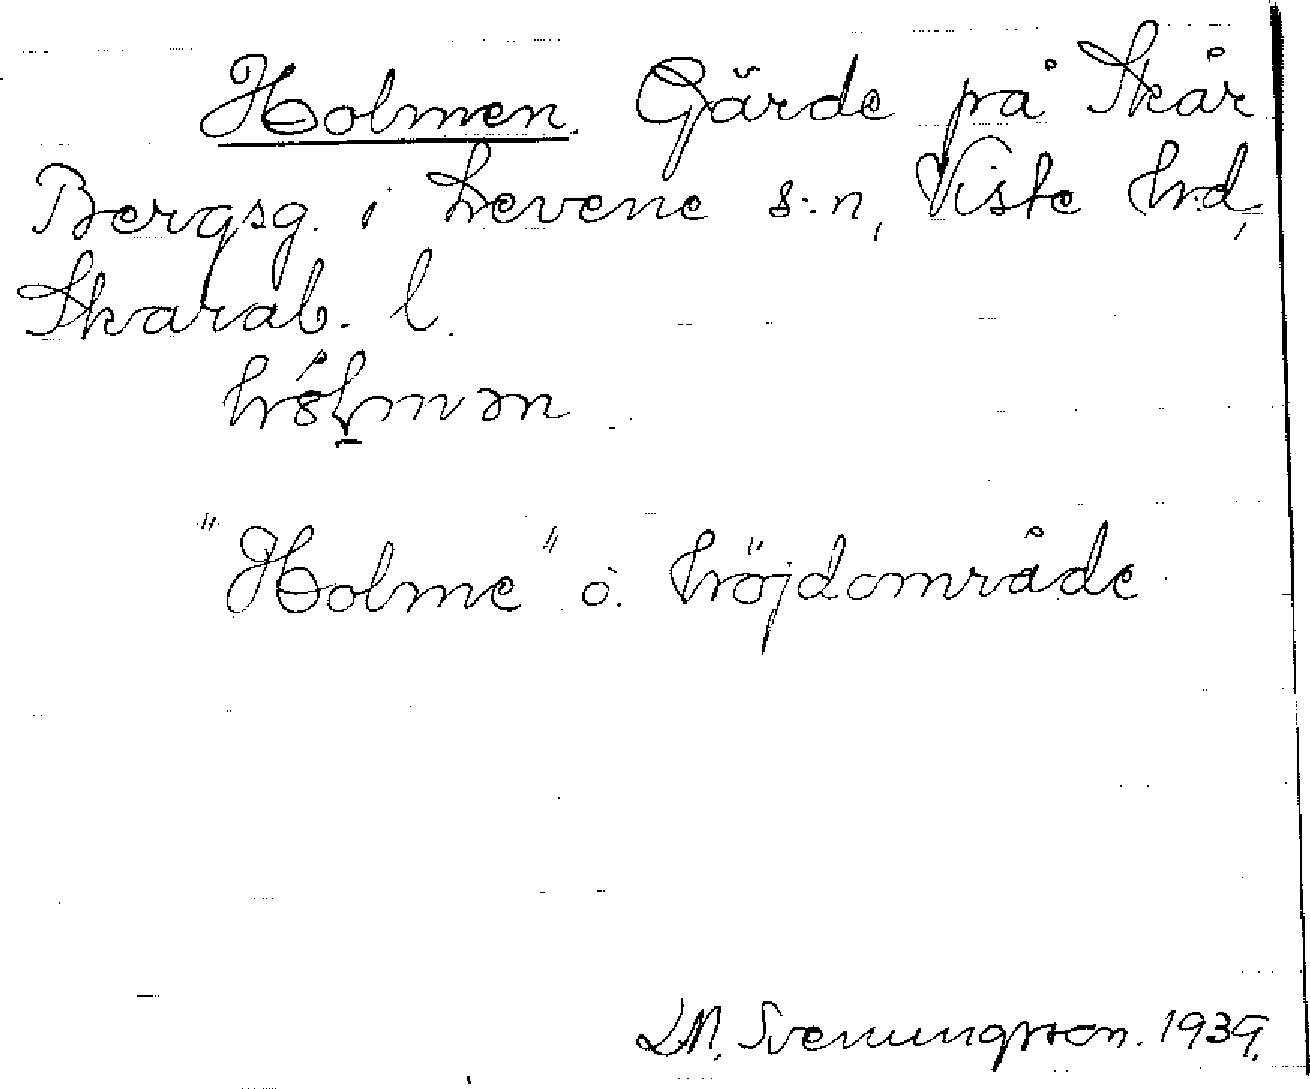 Holmen. Gärde på Skår
Bergsg. i Levene s:n, Viste hrd,
Skarab. l.
"Holme" o. höjdområde
L.M. Svenungsson. 1939.